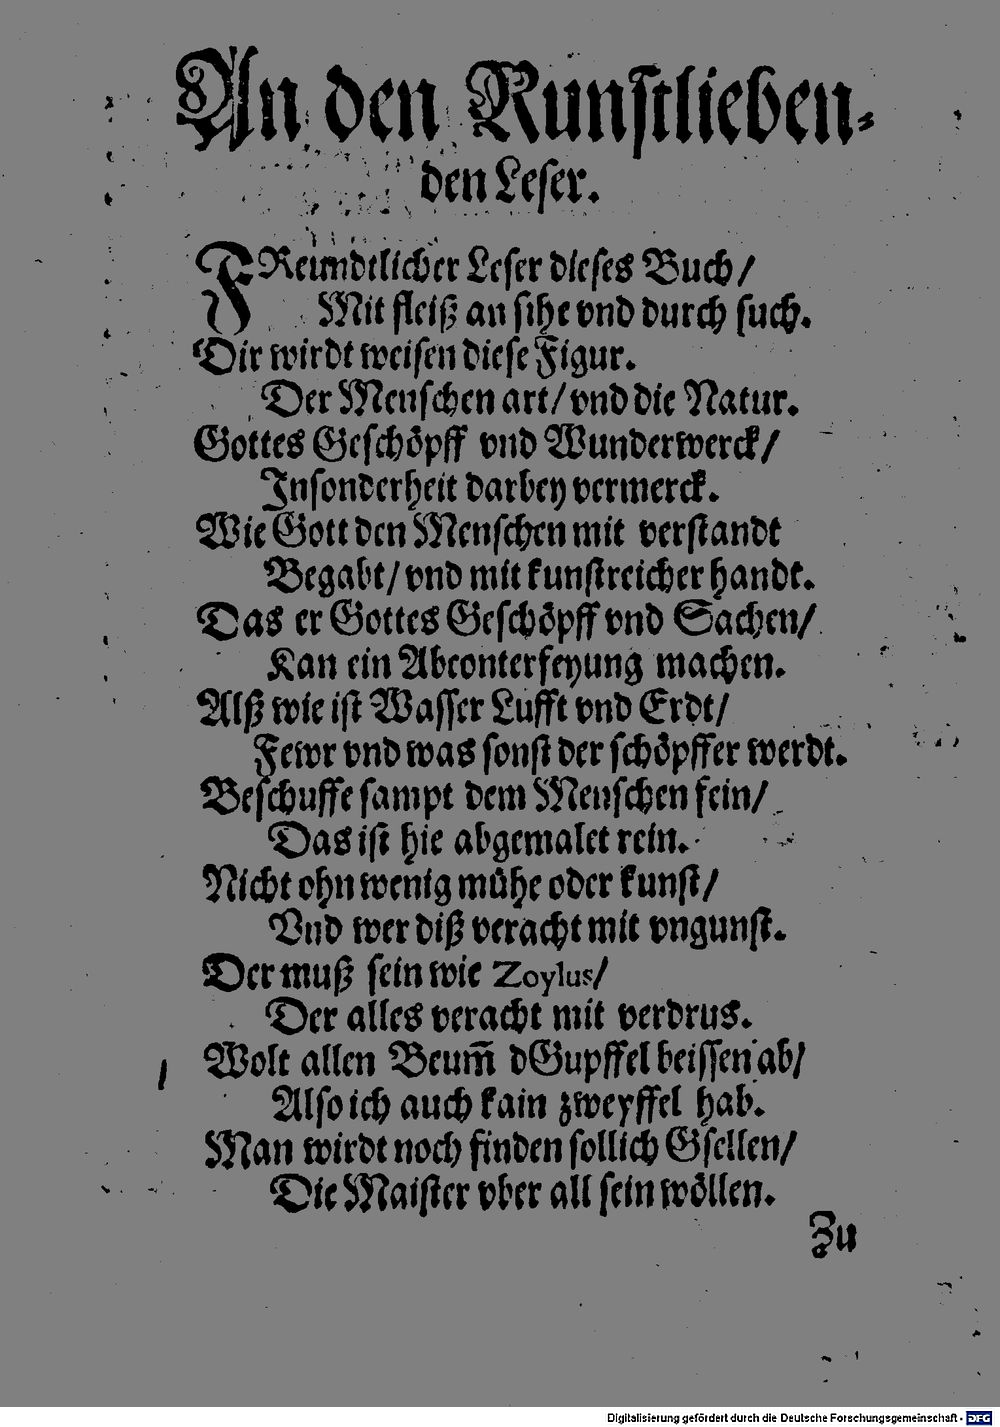 An den Kunstlieben-
den Leser.
FReundtlicher Leser dieses Buch/
Mit fleiß an sihe vnd durch such.
Dir wirdt weisen diese Figur.
Der Menschen art/ vnd die Natur.
Gottes Geschöpff vnd Wunderwerck/
Insonderheit darbey vermerck.
Wie Gott den Menschen mit verstandt
Begabt/ vnd mit kunstreicher handt.
Das er Gottes Geschöpff vnd Sachen/
Kan ein Abconterfeyung machen.
Alß wie ist Wasser Lufft vnd Erdt/
Fewr vnd was sonst der schöpffer werdt.
Beschuffe sampt dem Menschen fein/
Das ist hie abgemalet rein.
Nicht ohn wenig mühe oder kunst/
Vnd wer diß veracht mit vngunst.
Der muß sein wie Zoylus/
Der alles veracht mit verdrus.
Wolt allen Beum̃ dGupffel beissen ab/
Also ich auch kain zweyffel hab.
Man wirdt noch finden sollich Gsellen/
Die Maister vber all sein wöllen.
Zu
Digitalisierung gefördert durch die Deutsche Forschungsgemeinschaft - DFG